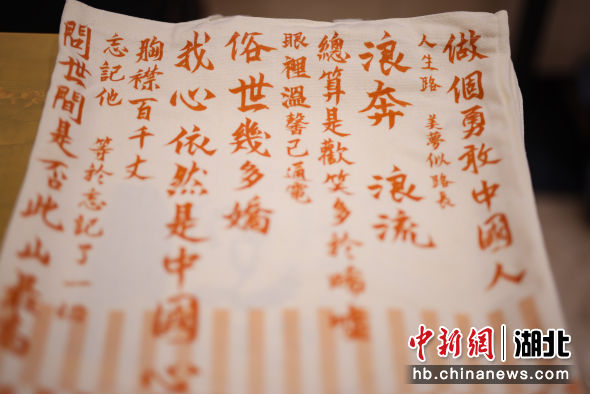 做個勇敢中國人
人生路 美夢似路長
浪奔 浪流
總算是歡笑多於唏噓
眼裡溫馨已通電
俗世幾多嬌
我心依然是中國心
胸襟百千丈
忘記他 等於忘記了一切
問世間是否此山最高
中新網 湖北
hb.chinanews.com